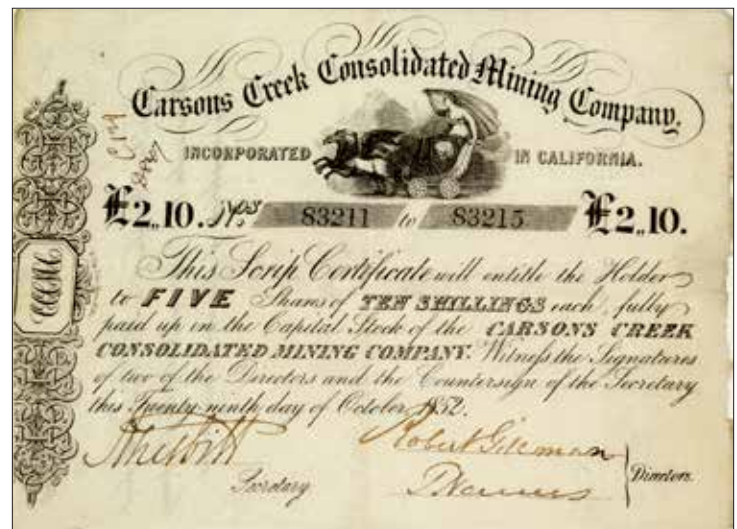 Carsons Creek Consolidated Mining Company.
INCORPORATED IN CALIFORNIA.
£2,,10. Nos 83211 to 83215 £2,,10.
This Scrip Certificate will entitle the Holder
to FIVE Shares of TEN SHILLINGS each, fully
paid up in the Capital Stock of the CARSONS CREEK
CONSOLIDATED MINING COMPANY. Witness the Signatures
of two of the Directors and the Countersign of the Secretary
this Twenty ninth day of October 1852.
Robert
Secretary.
Directors.